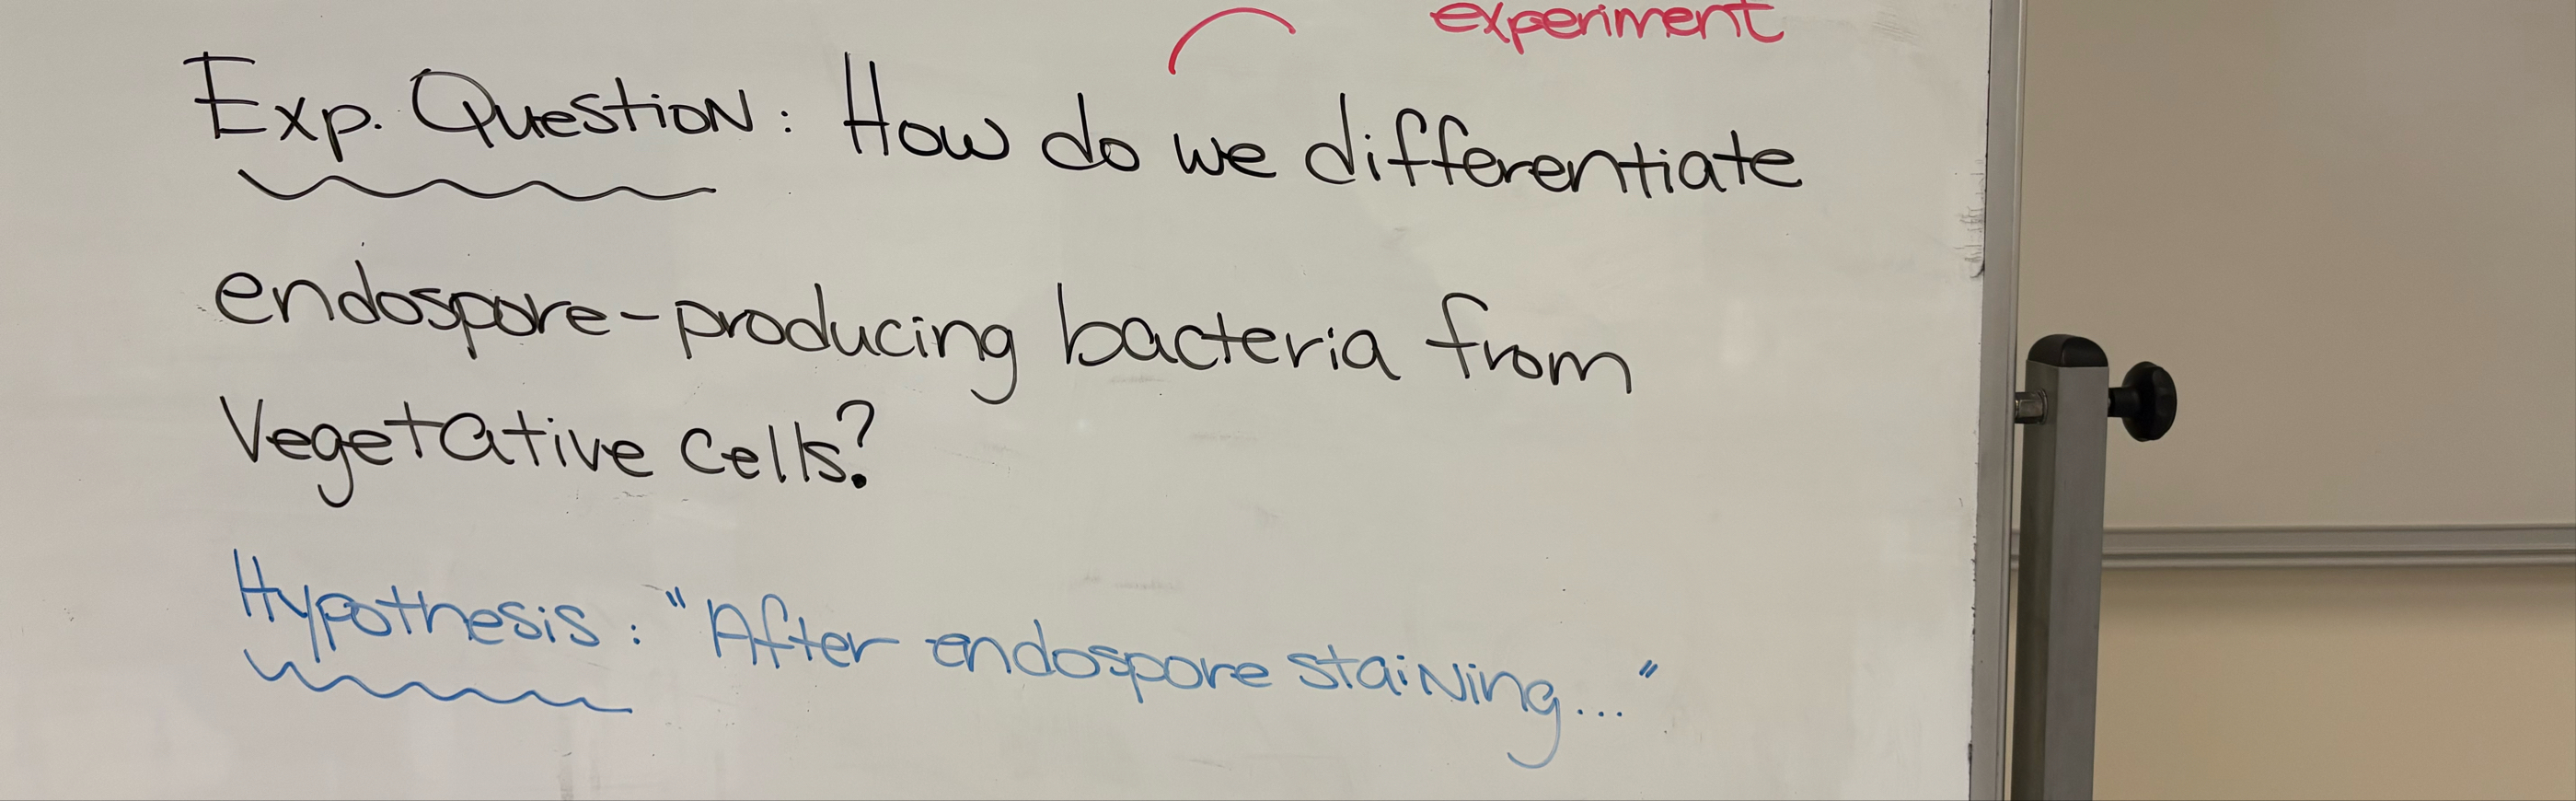 experiment
Exp. Question: How do we differentiate
endospore-producing bacteria from
Vegetative cells?
Hypothesis: "After endospore staining..."